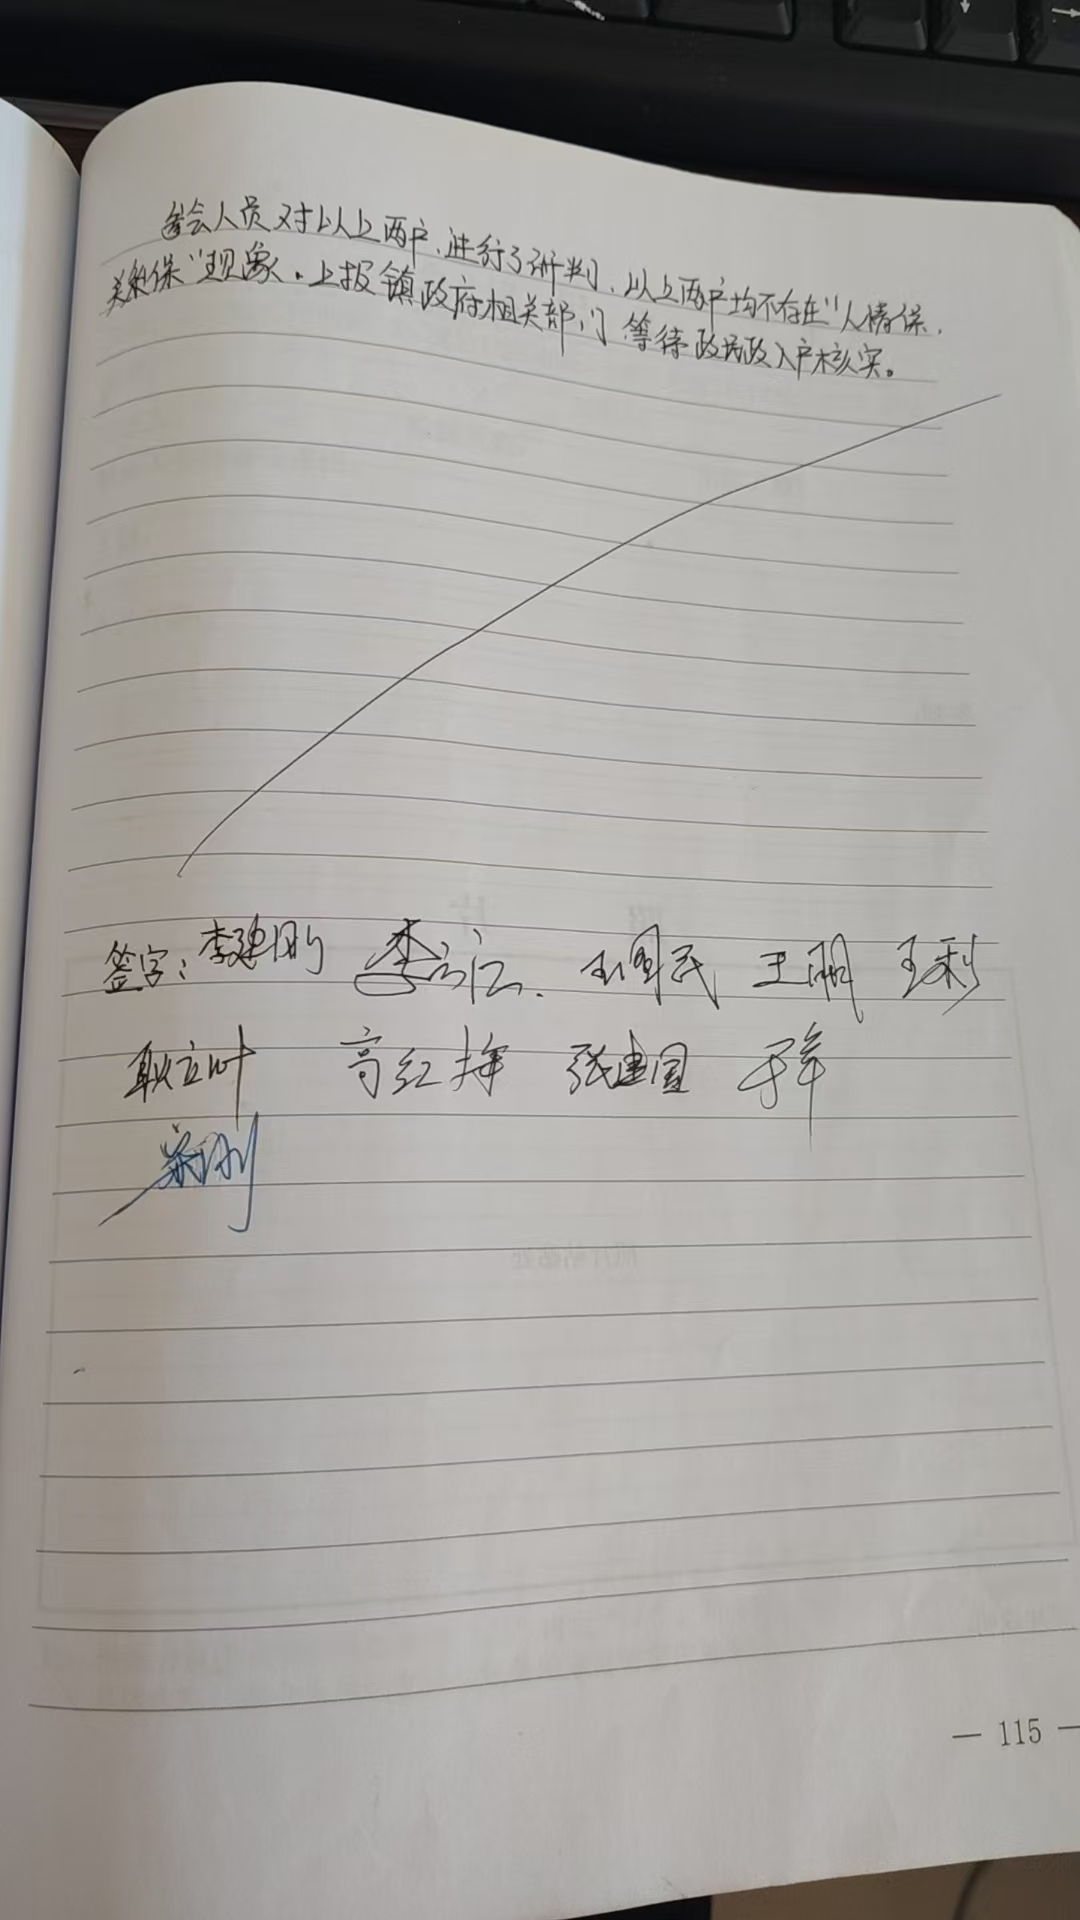 会人员对以上两户,进行了研判,以上两户均不存在"人情保,
关系保"现象。上报镇政府相关部门 等待民政入户核实。
签字:李建刚 李 国民 王丽 王利
耿立叶 高红 张建国 于军
刚
— 115 —